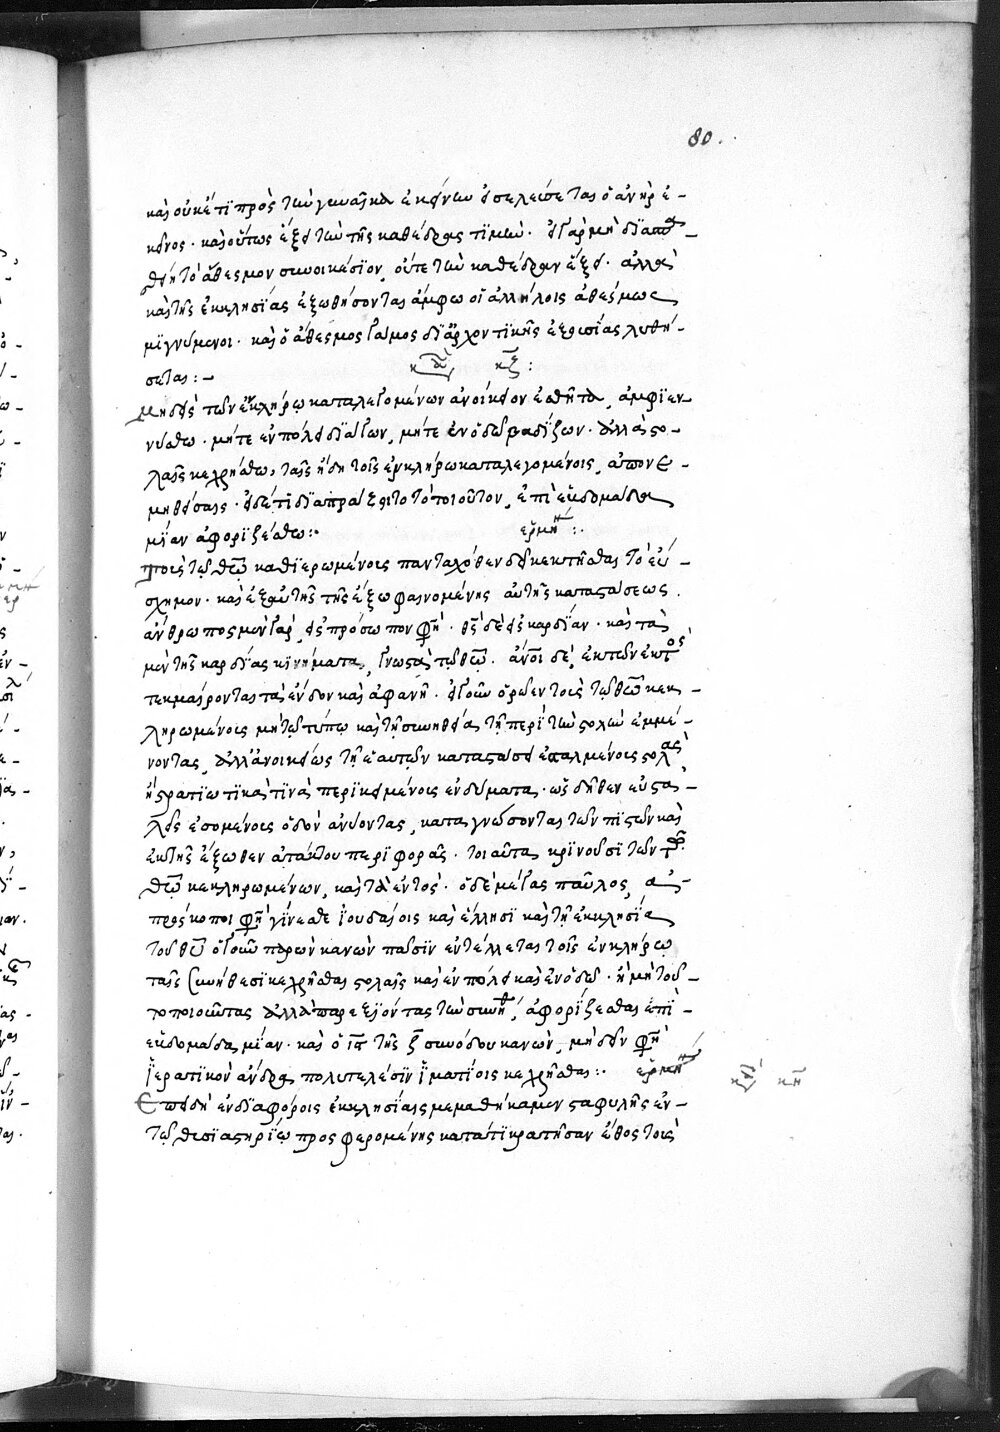 80.
καὶ οὐκέτι πρὸς τὴν γυναῖκα ἐκείνην εἰσελεύσεται ὁ ἀνὴρ ἐ-
κεῖνος· καὶ οὕτως ἕξει τὴν τῆς καθέδρας τιμήν· εἰ γὰρ μὴ διαιρ-
θείη τὸ ἄθεσμον συνοικέσιον, οὔτε τὴν καθέδραν ἕξει· ἀλλὰ
καὶ τῆς ἐκκλησίας ἐξωθήσονται ἄμφω οἱ ἀλλήλοις ἀθέσμως
μιγνύμενοι· καὶ ὁ ἄθεσμος γάμος δι' ἀρχοντικῆς ἐξουσίας λυθή-
σεται:-
κζ:
μηδεὶς τῶν ἐν κλήρῳ καταλεγομένων ἀνοίκειον ἐσθῆτα, ἀμφιεν-
νύσθω· μήτε ἐν πόλει διάγων, μήτε ἐν ὁδῷ βαδίζων· ἀλλὰ στο-
λαῖς κεχρήσθω, ταῖς ἤδη τοῖς ἐν κλήρω καταλεγομένοις, ἀπονε-
μηθείσαις· εἰ δέ τι διαπράξοιτο τὸ τοιοῦτον, ἐπὶ ἑβδομάδα
μίαν ἀφοριζέσθω:·
ἑρμη:·
τοῖς τῷ θεῷ καθιερωμένοις πανταχόθεν δεῖ κεκτῆσθαι τὸ εὔ-
σχημον· καὶ ἐξ αὐτῆς τῆς ἔξω φαινομένης αὐτῆς καταστάσεως.
ἄνθρωπος μὲν γὰρ, εἰς πρόσωπον φη· θς δὲ εἰς καρδίαν· καὶ τὰ
μὲν τῆς καρδίας κινήματα, γνωστὰ τῷ θω. ἄνοι δὲ, ἐκ τῶν ἐκτὸς
τεκμαίρονται τὰ ἔνδον καὶ ἀφανῆ· εἰ γοῦν ὁρῶεν τοῖς τῷ θω κεκ-
ληρωμένοις μὴ τῷ τύπῳ καὶ τῇ συνηθείᾳ τῇ περὶ τὴν στολὴν ἐμμέ-
νοντας, ἀλλ' ἀνοικείως τῇ ἑαυτῶν καταστάσει ἐσταλμένοις στολὰς
ἢ στρατιωτικὰ τινὰ περικειμένοις ἐνδύματα· ὡς δῆθεν εὐστα-
λεῖς ἐσομένοις ὁδὸν ἀνύοντας, καταγνώσονται τῶν πιστῶν καὶ
ἐκ τῆς ἔξωθεν ἀτάκτου περιφορᾶς· τοιαῦτα κρίνουσι τῶν τῷ
θω κεκληρωμένων, καὶ τὰ ἐντός· ὁ δὲ μέγας παῦλος, ἀ-
πρόσκοποι φη γίνεσθε ἰουδαίοις καὶ ἕλλησι καὶ τῇ ἐκκλησίᾳ
τοῦ θυ ὁ γοῦν παρὼν κανὼν πᾶσιν ἐντέλλεται τοῖς ἐν κλήρῳ
ταῖς συνήθεσι κεχρῆσθαι στολαῖς καὶ ἐν πόλει καὶ ἐν ὁδῷ· ἢ μὴ τοῦ-
το ποιοῦντας ἀλλὰ παρεξιόντας τὴν συνηθ, ἀφορίζεσθαι ἐπὶ
ἑβδομάδα μίαν· καὶ ὁ ις της ζ συνόδου κανὼν, μὴ δεῖν φη
ἱερατικὸν ἄνδρα πολυτελέσιν ἱματίοις κεχρῆσθαι:· ἑρμη
κη
Ἐπειδὴ ἐν διαφόροις ἐκκλησίαις μεμαθήκαμεν σταφυλῆς ἐν-
τῷ θυσιαστηρίῳ προσφερομένης κατά τι κρατῆσαν ἔθος τοῖς